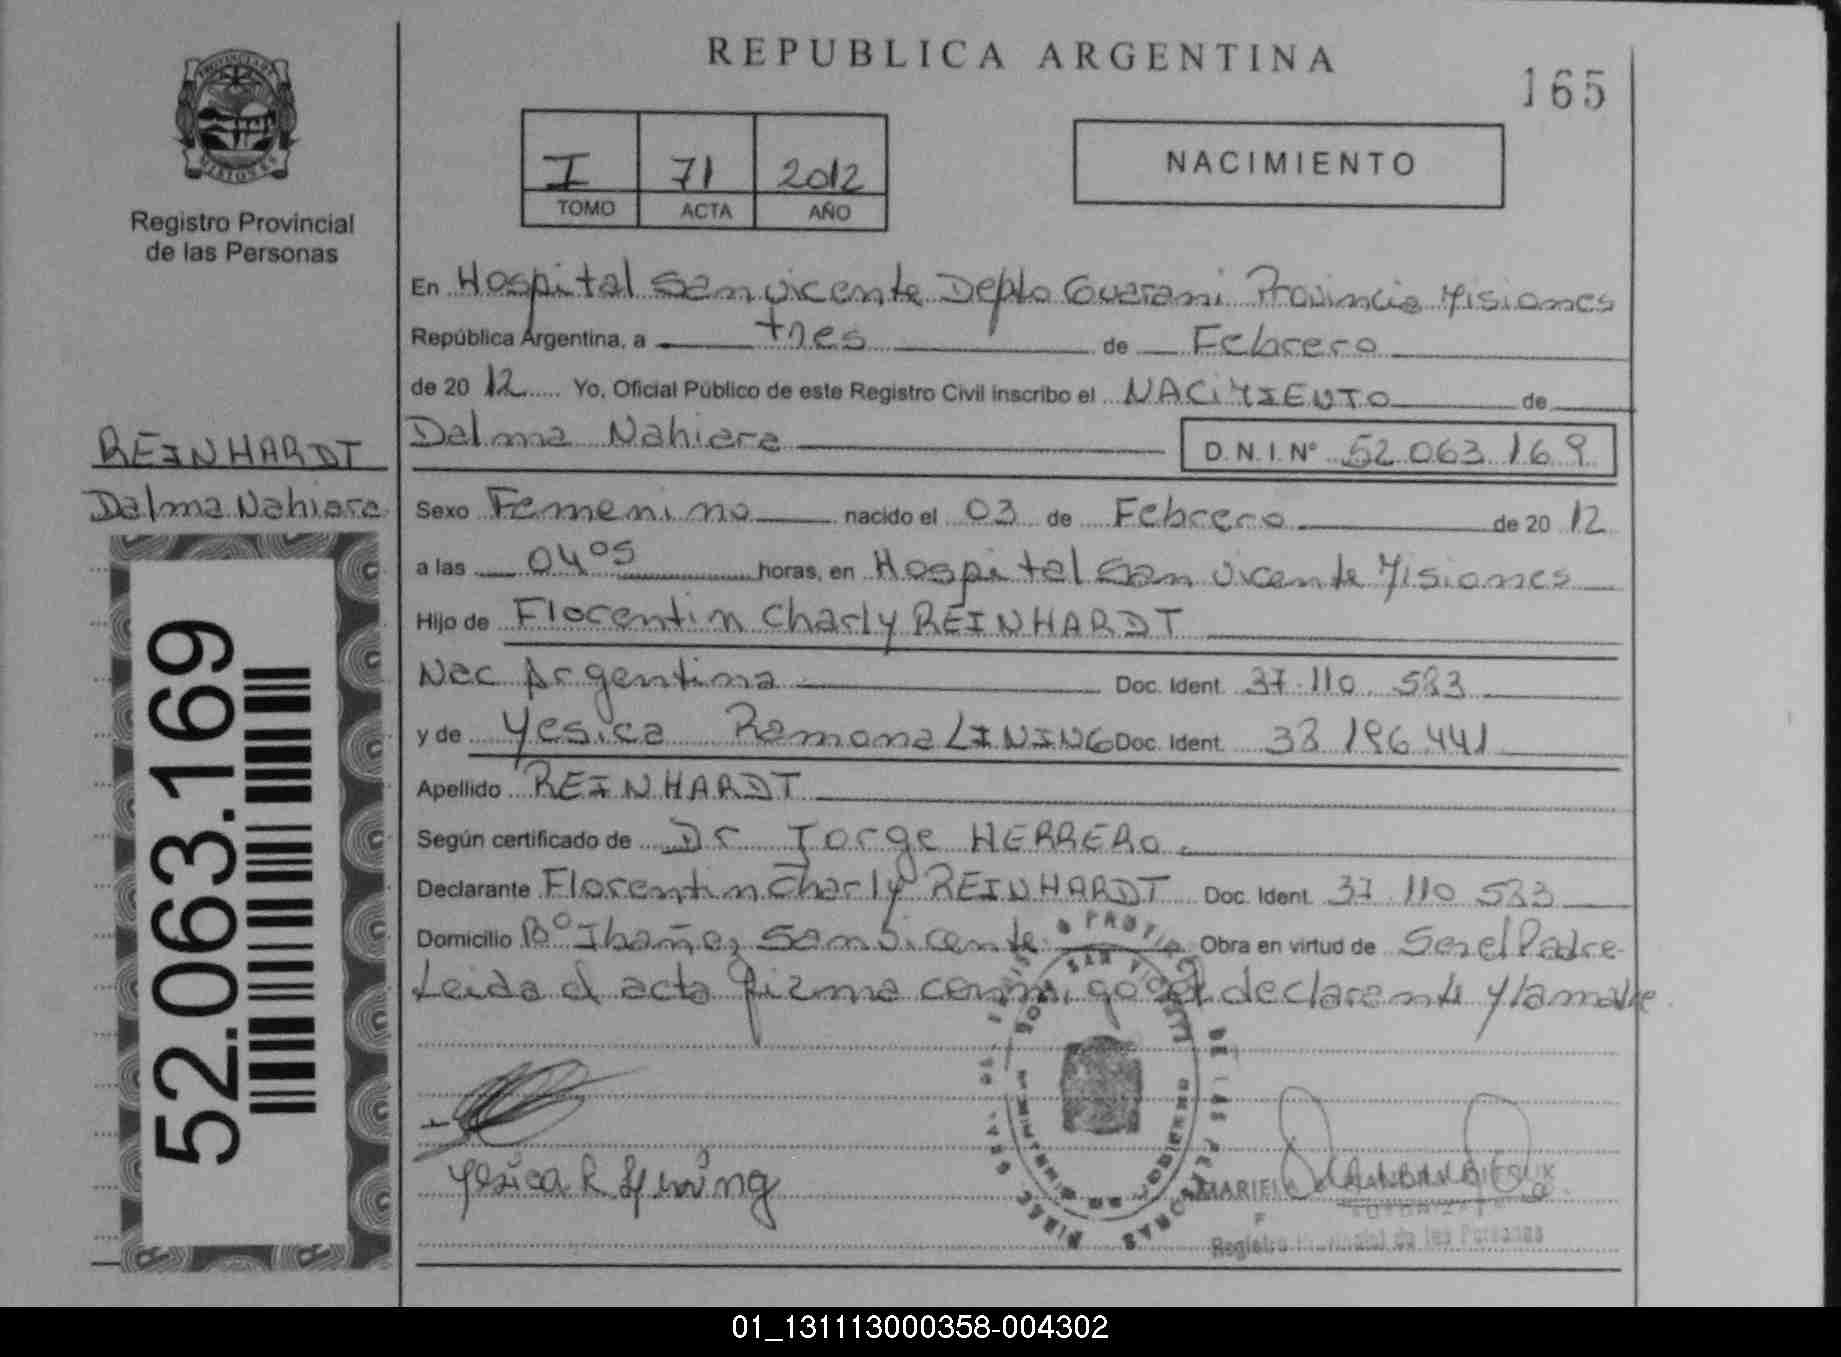 REPUBLICA ARGENTINA
165
I 71 2012
TOMO ACTA AÑO
NACIMIENTO
Registro Provincial
de las Personas
REINHARDT
Dalma Nahiara
52.063.169
En Hospital San vicente Depto Guarani Provincia Misiones
República Argentina, a tres de Febrero
de 20 12 Yo, Oficial Público de este Registro Civil inscribo el NACIMIENTO de
Dalma Nahiara D.N.I. Nº 52.063.169
Sexo Femenino nacido el 03 de Febrero de 20 12
a las 04 05 horas, en Hospital San vicente Misiones
Hijo de Florentin Charly REINHARDT
Nac Argentina Doc. Ident. 37.110.583
y de Yesica Ramona LINING Doc. Ident. 38.196.441
Apellido REINHARDT
Según certificado de Dr Jorge HERRERO
Declarante Florentin Charly REINHARDT Doc. Ident. 37.110.583
Domicilio Bº Ibañez, San vicente Obra en virtud de Ser el Padre
Leida el acta firma conmigo el declarante y la madre
SAN VICENTE
DE LAS PERSONAS
Yesica R Lining
Registro Provincial de las Personas
01_131113000358-004302